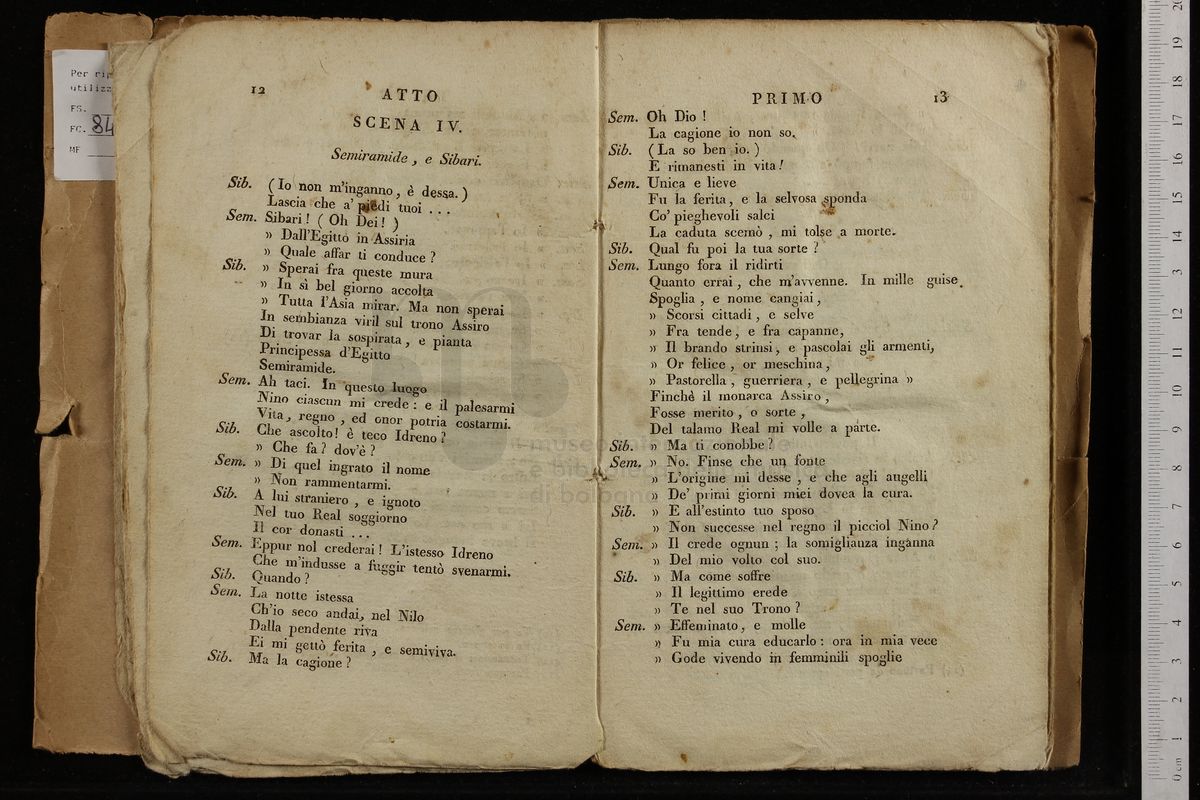 Per
utilizz
FS.
FC. 84
MF
12
ATTO
SCENA IV.
Semiramide, e Sibari.
Sib. (Io non m'inganno, è dessa.)
Lascia che a' piedi tuoi ...
Sem. Sibari! (Oh Dei!)
» Dall'Egitto in Assiria
» Quale affar ti conduce?
Sib. » Sperai fra queste mura
» In sì bel giorno accolta
» Tutta l'Asia mirar. Ma non sperai
In sembianza viril sul trono Assiro
Di trovar la sospirata, e pianta
Principessa d'Egitto
Semiramide.
Sem. Ah taci. In questo luogo
Nino ciascun mi crede: e il palesarmi
Vita, regno, ed onor potria costarmi.
Sib. Che ascolto! è teco Idreno?
» Che fa? dov'è?
Sem. » Di quel ingrato il nome
» Non rammentarmi.
Sib. A lui straniero, e ignoto
Nel tuo Real soggiorno
Il cor donasti ...
Sem. Eppur nol crederai! L'istesso Idreno
Che m'indusse a fuggir tentò svenarmi.
Sib. Quando?
Sem. La notte istessa
Ch'io seco andai, nel Nilo
Dalla pendente riva
Ei mi gettò ferita, e semiviva.
Sib. Ma la cagione?
PRIMO
13
Sem. Oh Dio!
La cagione io non so.
Sib. (La so ben io.)
E rimanesti in vita!
Sem. Unica e lieve
Fu la ferita, e la selvosa sponda
Co' pieghevoli salci
La caduta scemò, mi tolse a morte.
Sib. Qual fu poi la tua sorte?
Sem. Lungo fora il ridirti
Quanto errai, che m'avvenne. In mille guise
Spoglia, e nome cangiai,
» Scorsi cittadi, e selve
» Fra tende, e fra capanne,
» Il brando strinsi, e pascolai gli armenti,
» Or felice, or meschina,
» Pastorella, guerriera, e pellegrina »
Finchè il monarca Assiro,
Fosse merito, o sorte,
Del talamo Real mi volle a parte.
Sib. » Ma ti conobbe?
Sem. » No. Finse che un fonte
» L'origine mi desse, e che agli augelli
» De' primi giorni miei dovea la cura.
Sib. » E all'estinto tuo sposo
» Non successe nel regno il picciol Nino?
Sem. » Il crede ognun; la somiglianza inganna
» Del mio volto col suo.
Sib. » Ma come soffre
» Il legittimo erede
» Te nel suo Trono?
Sem. » Effeminato, e molle
» Fu mia cura educarlo: ora in mia vece
» Gode vivendo in femminili spoglie